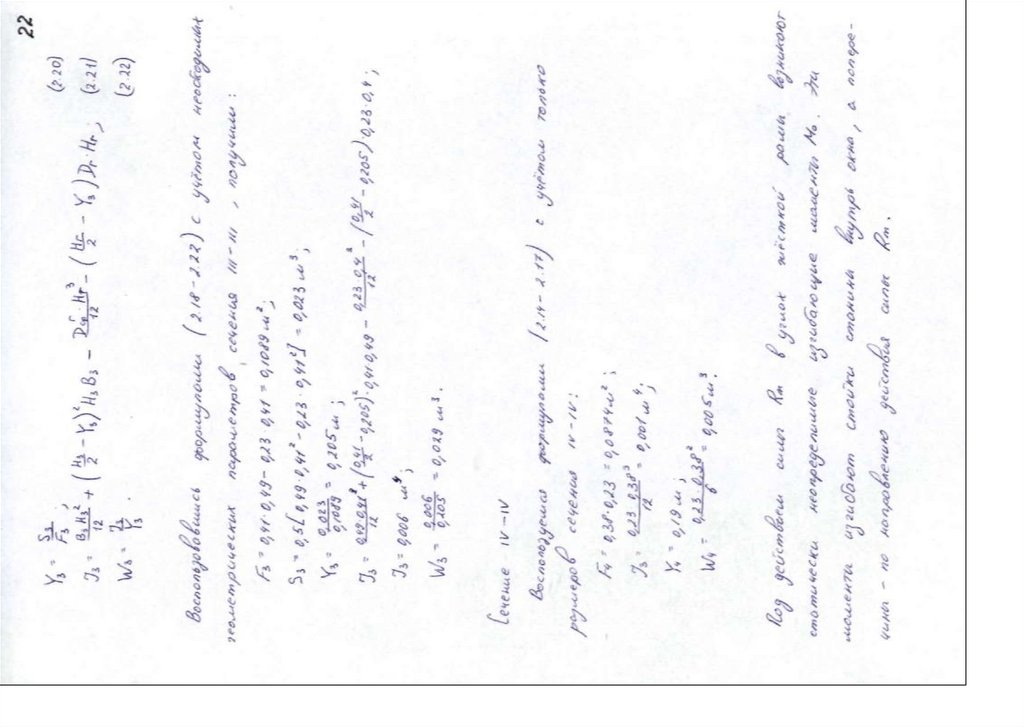 22
Y₃ = S₃/F₃ ; (2.20)
J₃ = B₃H₃²/12 + (H₃/2 − Y₃)²H₃B₃ − Dr·Hr³/12 − (Hr/2 − Y₃)Dr·Hr ; (2.21)
W₃ = J₃/Y₃ . (2.22)
Воспользовавшись формулами (2.18-2.22) с учётом необходимых
геометрических параметров сечения III-III, получили:
F₃ = 0,41·0,49 − 0,23·0,41 = 0,1089 м²;
S₃ = 0,5[0,49·0,41² − 0,23·0,41²] = 0,023 м³;
Y₃ = 0,023/0,1089 = 0,205 м;
J₃ = 0,49·0,41²/12 + (0,41/2 − 0,205)²·0,41·0,49 − 0,23·0,4²/12 − (0,41/2 − 0,205)·0,23·0,4;
J₃ = 0,006 м⁴;
W₃ = 0,006/0,205 = 0,029 м³.
Сечение IV-IV
Воспользуемся формулами (2.14-2.17) с учётом только
размеров сечения IV-IV:
F₄ = 0,38·0,23 = 0,0874 м²;
J₄ = 0,23·0,38³/12 = 0,001 м⁴;
Y₄ = 0,19 м;
W₄ = 0,23·0,38²/6 = 0,005 м³.
Под действием силы Rm в углах жёсткой рамы возникают
статически неопределимые изгибающие моменты M₀. Эти
моменты изгибают стойки станины внутрь окна, а попере-
чины - по направлению действия силы Rm.